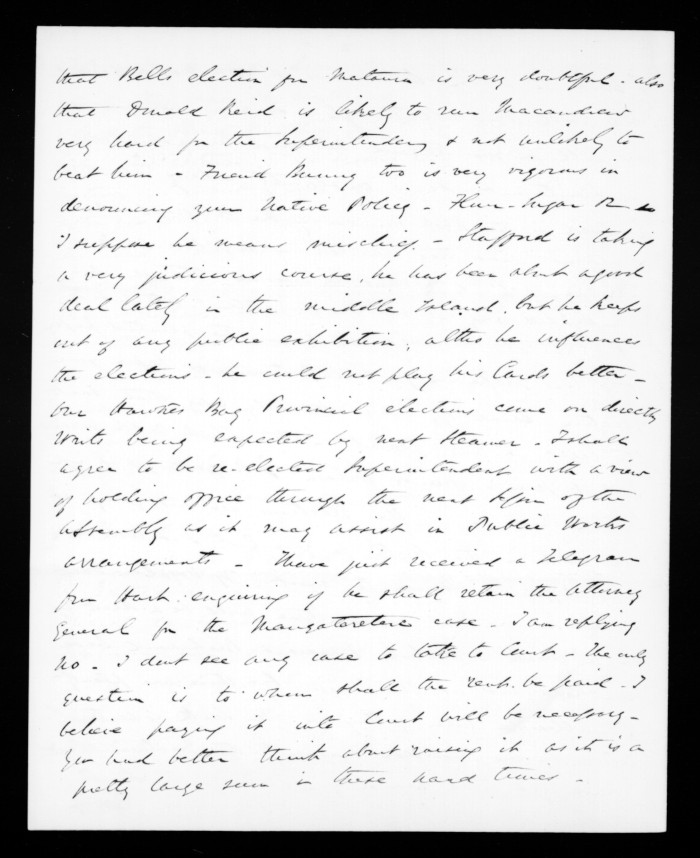 that Bells election for Mataura is very doubtful - also
that Donald Reid is likely to run Macandrew
very hard for the Superintendency & not unlikely to
beat him - Friend Bunny too is very vigorous in
denouncing your Native Policy - Flour - Sugar &c
I suppose he means mischief - Stafford is taking
a very judicious course, he has been about a good
deal lately in the middle Island, but he keeps
out of any public exhibition, altho he influences
the elections - he could not play his Cards better -
Our Hawkes Bay Provincial elections come on directly
Writs being expected by next Steamer - I shall
agree to be re-elected Superintendent with a view
of holding office through the next Session of the
Assembly as it may assist in Public Works
arrangements - I have just received a Telegram
from Hart enquiring if he shall retain the Attorney
General for the Mangateretere case - I am replying
No - I dont see any case to take to Court - The only
question is to whom shall the rent be paid - I
believe paying it into Court will be necessary -
You had better think about raising it as it is a
pretty large sum in these hard times -